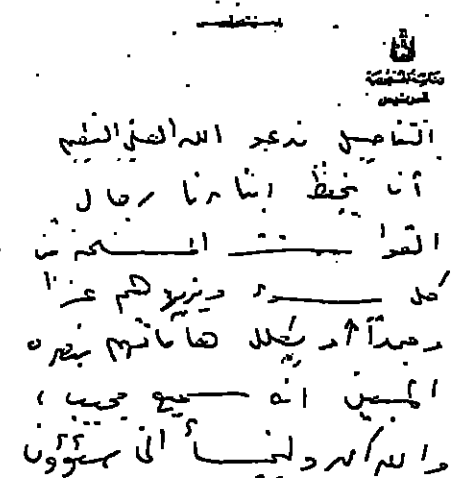 التفاصيل ندعو الله العلي القدير
أن يحفظ ابناءنا رجال
القوات المسلحة من
كل سوء ويزيدهم عزاً
ومجداً و يكلل هاماتهم بنصره
المبين انه سميع مجيب ،
والله أكبر وليخسأ الخاسؤون